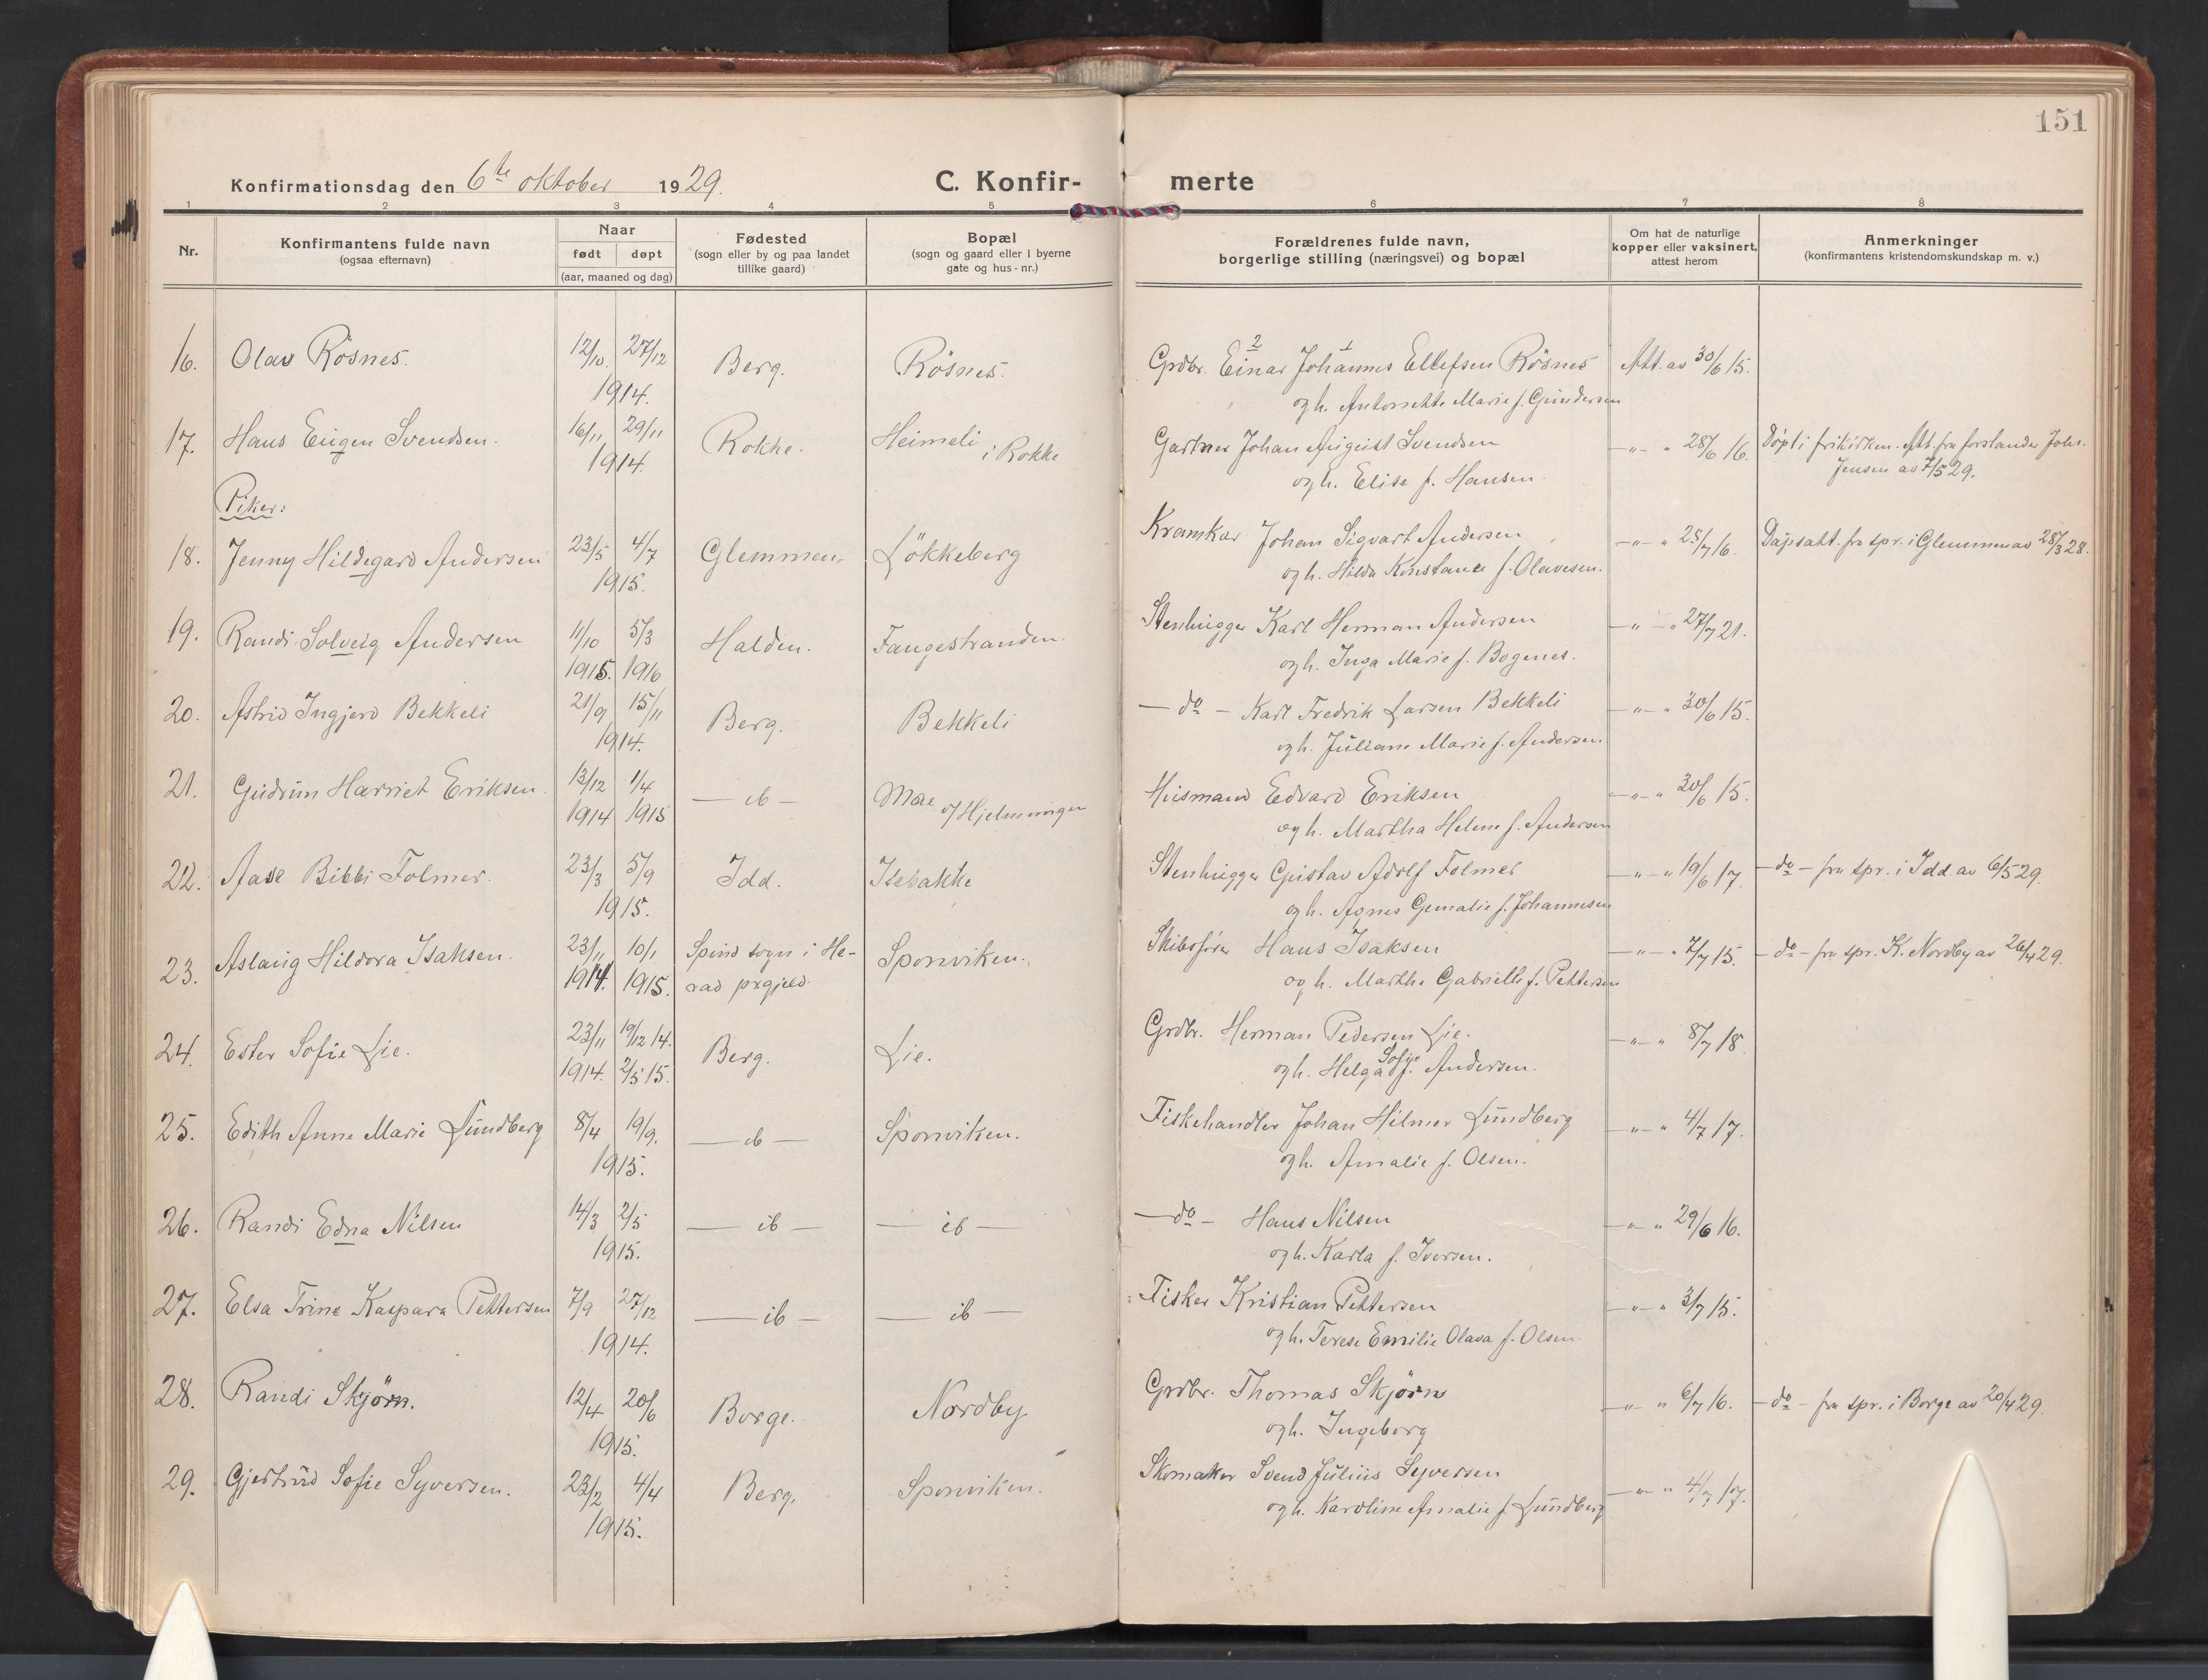 151
Konfirmationsdag den 6te oktober 1929.
C. Konfir- merte
1 2 3 4 5 6 7 8
Nr.
Konfirmantens fulde navn
(ogsaa efternavn)
Naar
født døpt
(aar, maaned og dag)
Fødested
(sogn eller by og paa landet
tillike gaard)
Bopæl
(sogn og gaard eller i byerne
gate og hus-nr.)
Forældrenes fulde navn,
borgerlige stilling (næringsvei) og bopæl
Om hat de naturlige
kopper eller vaksinert,
attest herom
Anmerkninger
(konfirmantens kristendomskundskap m. v.)
16. Olav Rösnes. 12/10. 27/12 Berg. Rösnes. Grdbr. Einar Johannes Ellefsen Rösnes Att. av 30/6 15.
2 1
1914. og h. Antonette Marie f. Gundersen
17. Hans Eugen Svendsen. 16/11 29/11 Rokke. Heimeli i Rokke Gartner Johan August Svendsen -"- " 28/6 16. Döpt i frikirken. Att. fra forstander Johs.
1914. og h. Elise f. Hansen. Jensen av 7/5 29.
Piker:
18. Jenny Hildegard Andersen 23/5 4/7 Glemmen. Lökkeberg Kramkar Johan Sigvart Andersen -"- " 25/7 16. Dåpsatt. fra spr. i Glemmen av 28/3 28.
1915. og h. Hilda Konstance f. Olavesen.
19. Randi Solveig Andersen 11/10 5/3 Halden. Fangestranden. Stenhugger Karl Herman Andersen -"- " 27/7 21.
1915. 1916 og h. Inga Marie f. Bogenes.
20. Astrid Ingjerd Bekkeli 21/9 15/11 Berg. Bekkeli - do - Karl Fredrik Larsen Bekkeli -"- " 30/6 15.
1914. og h. Juliane Marie f. Andersen.
21. Gudrun Harriet Eriksen. 13/12 1/4 - ib - Moe u/Hjelmungen Husmand Edvard Eriksen -"- " 30/6 15.
1914 1915 og h. Martha Helene f. Andersen
22. Aase Bibbi Folmer. 23/3 5/9 Idd. Isebakke Stenhugger Gustav Adolf Folmer -"- " 19/6 17. - do - fra spr. i Idd av 6/5 29.
1915. og h. Agnes Gunalie f. Johannesen
23. Aslaug Hildora Isaksen. 23/11 10/1 Spind sogn i He- Sponviken. Skibsfører Hans Isaksen -"- " 7/7 15. - do - fra spr. K. Nordby av 26/4 29.
1914. 1915. rad prgjeld. og h. Marthe Gabrielle f. Pettersen
24. Ester Sofie Lie. 23/11 19/12 14. Berg. Lie. Grdbr. Herman Pedersen Lie. -"- " 8/7 18
1914. 2/5 15. og h. Helga Sofie f. Andersen.
25. Edith Anne Marie Lundberg 8/4 19/9. - ib - Sponviken. Fiskehandler Johan Hilmer Lundberg -"- " 4/7 17.
1915. og h. Amalie f. Olsen.
26. Randi Edna Nilsen 14/3 2/5 - ib - - ib - - do - Hans Nilsen -"- " 29/6 16.
1915. og h. Karla f. Iversen.
27. Elsa Trine Kaspara Pettersen 7/9 27/12 - ib - - ib - Fisker Kristian Pettersen -"- " 3/7 15.
1914. og h. Terese Emilie Olava f. Olsen.
28. Randi Skjörn. 12/4 20/6 Borge. Nordby Grdbr. Thomas Skjörn -"- " 6/7 16. - do - fra spr. i Borge av 20/4 29.
1915. og h. Ingeborg
29. Gjertrud Sofie Syversen. 23/2 4/4 Berg. Sponviken. Skomaker Svend Julius Syversen -"- " 4/7 17.
1915. og h. Karoline Amalie f. Lundberg